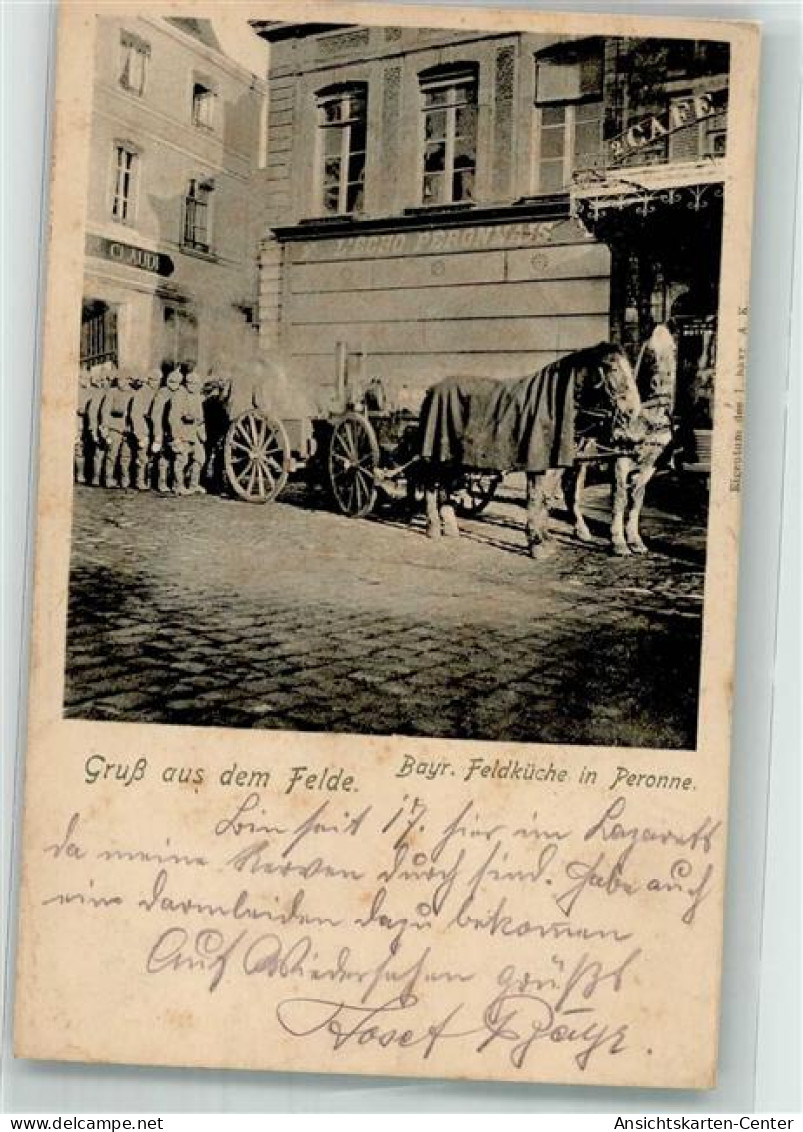 CAFE
CLAUDE
L'ECHO PERONNAIS
Eigentum des I. bayr. A. K
Gruß aus dem Felde.
Bayr. Feldküche in Peronne.
Bin seit 17. hier im Lazarett
da meine Nerven durch sind. Habe auch
ein Darmleiden dazu bekommen
Auf Wiedersehen grüßt
Josef Bayr.
delcampe.net
Ansichtskarten-Center